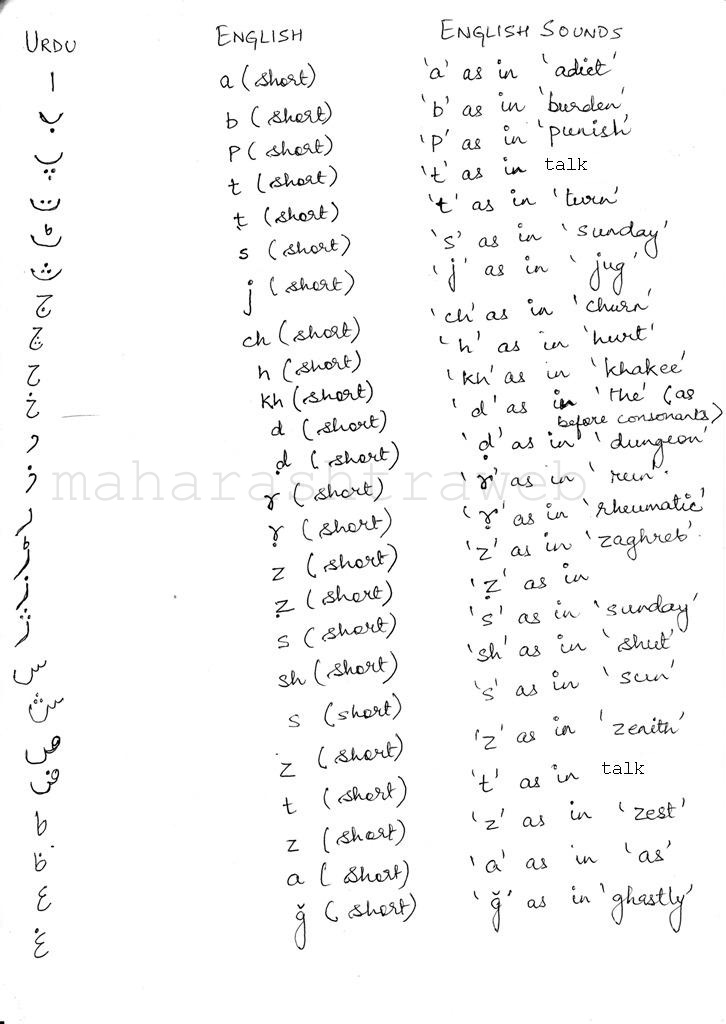 URDU ENGLISH ENGLISH SOUNDS
ا a (short) 'a' as in 'adict'
ب b (short) 'b' as in 'burden'
پ p (short) 'p' as in 'punish'
ت t (short) 't' as in talk
ٹ ṭ (short) 'ṭ' as in 'turn'
ث s (short) 's' as in 'sunday'
ج j (short) 'j' as in 'jug'
چ ch (short) 'ch' as in 'churn'
ح h (short) 'h' as in 'hurt'
خ kh (short) 'kh' as in 'khakee'
د d (short) 'd' as in 'the' (as before consonants)
ذ ḍ (short) 'ḍ' as in 'dungeon'
maharashtraweb
ر r (short) 'r' as in 'run'.
ڑ ṛ (short) 'ṛ' as in 'rheumatic'
ز z (short) 'z' as in 'zaghreb'.
ژ ẓ (short) 'ẓ' as in
س s (short) 's' as in 'sunday'
ش sh (short) 'sh' as in 'shut'
ص s (short) 's' as in 'sun'
ض z (short) 'z' as in 'zenith'
ط t (short) 't' as in talk
ظ z (short) 'z' as in 'zest'
ع a (short) 'a' as in 'as'
غ ğ (short) 'ğ' as in 'ghastly'